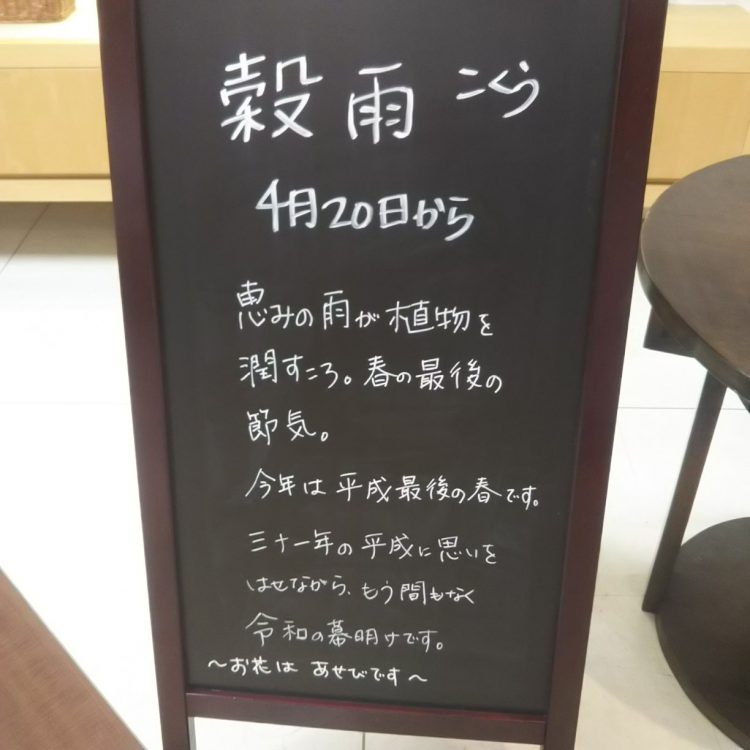 穀雨 こくう
4月20日から
恵みの雨が植物を
潤すころ。春の最後の
節気。
今年は平成最後の春です。
三十一年の平成に思いを
はせながら、もう間もなく
令和の幕明けです。
～お花は あせびです～